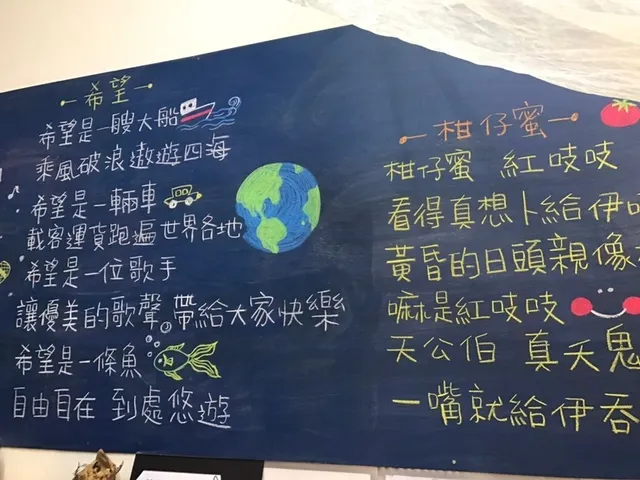 －希望－
希望是一艘大船
乘風破浪遨遊四海
希望是一輛車
載客運貨跑遍世界各地
希望是一位歌手
讓優美的歌聲,帶給大家快樂
希望是一條魚
自由自在 到處悠遊
－柑仔蜜－
柑仔蜜 紅吱吱
看得真想卜給伊
黃昏的日頭親像
嘛是紅吱吱
天公伯 真夭鬼
一嘴就給伊吞